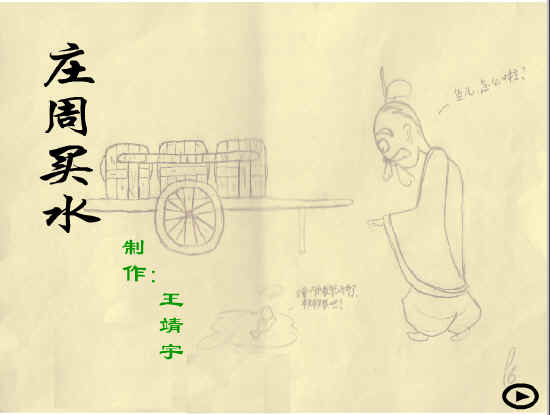 庄周买水
制作：
王靖宇
鱼儿，怎么啦？